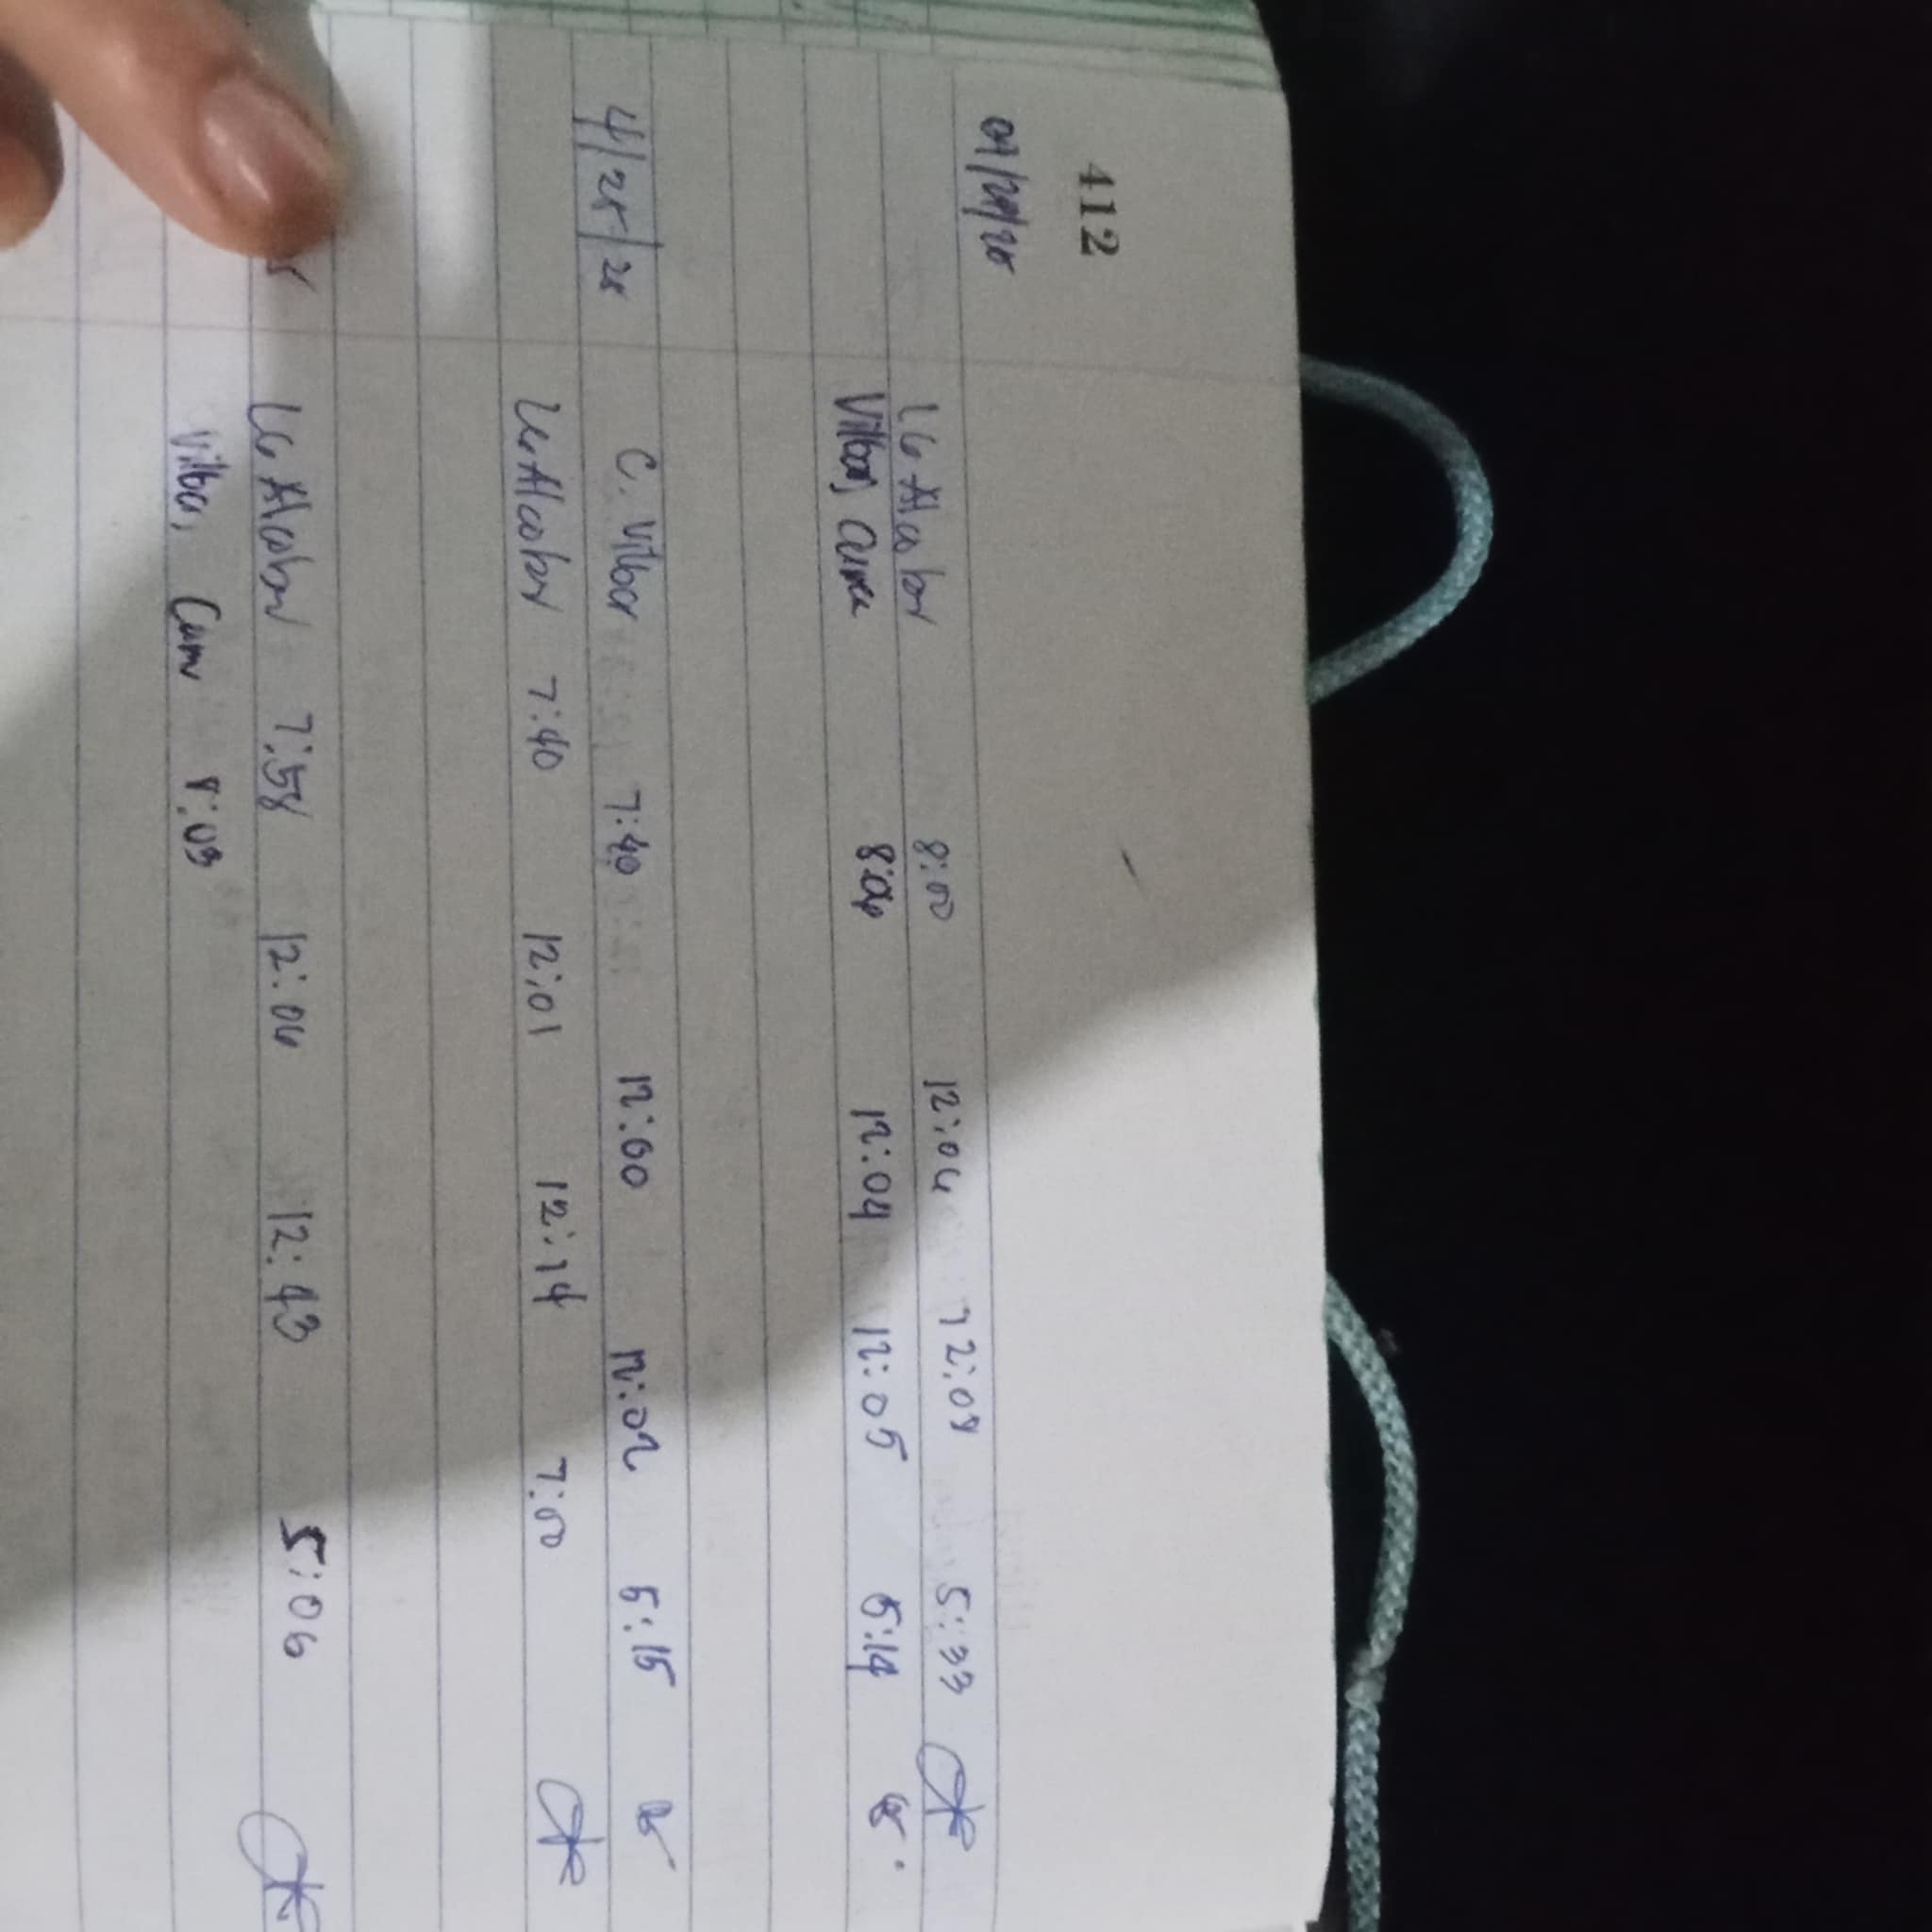 412
04/24/25
LG Alcober 8:00 12:04 12:09 5:33
Vilbar, 8:04 12:04 12:05 5:14
4/25/25 C. Vilbar 7:40 12:00 12:02 5:15
LG Alcober 7:40 12:01 12:14 7:00
LG Alcober 7:58 12:04 12:43 5:06
Vilbar, 8:03